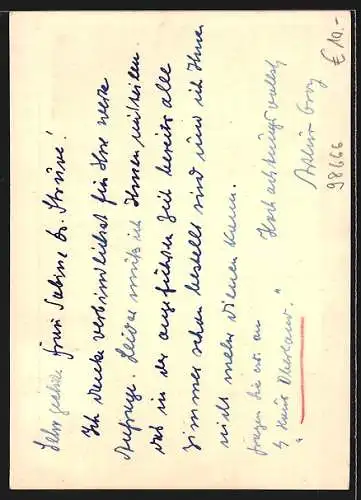 Sehr geehrte Frau Sabine Struve!
Ich danke verbindlichst für Ihre werte
Anfrage. Leider muß ich Ihnen mitteilen
das in der angeführten Zeit bereits alle
Zimmer schon bestellt sind und ich Ihnen
nicht mehr dienen kann.
fragen Sie an
Haus Oberland."
Hochachtungsvollst
Arthur
98666
€ 10.-